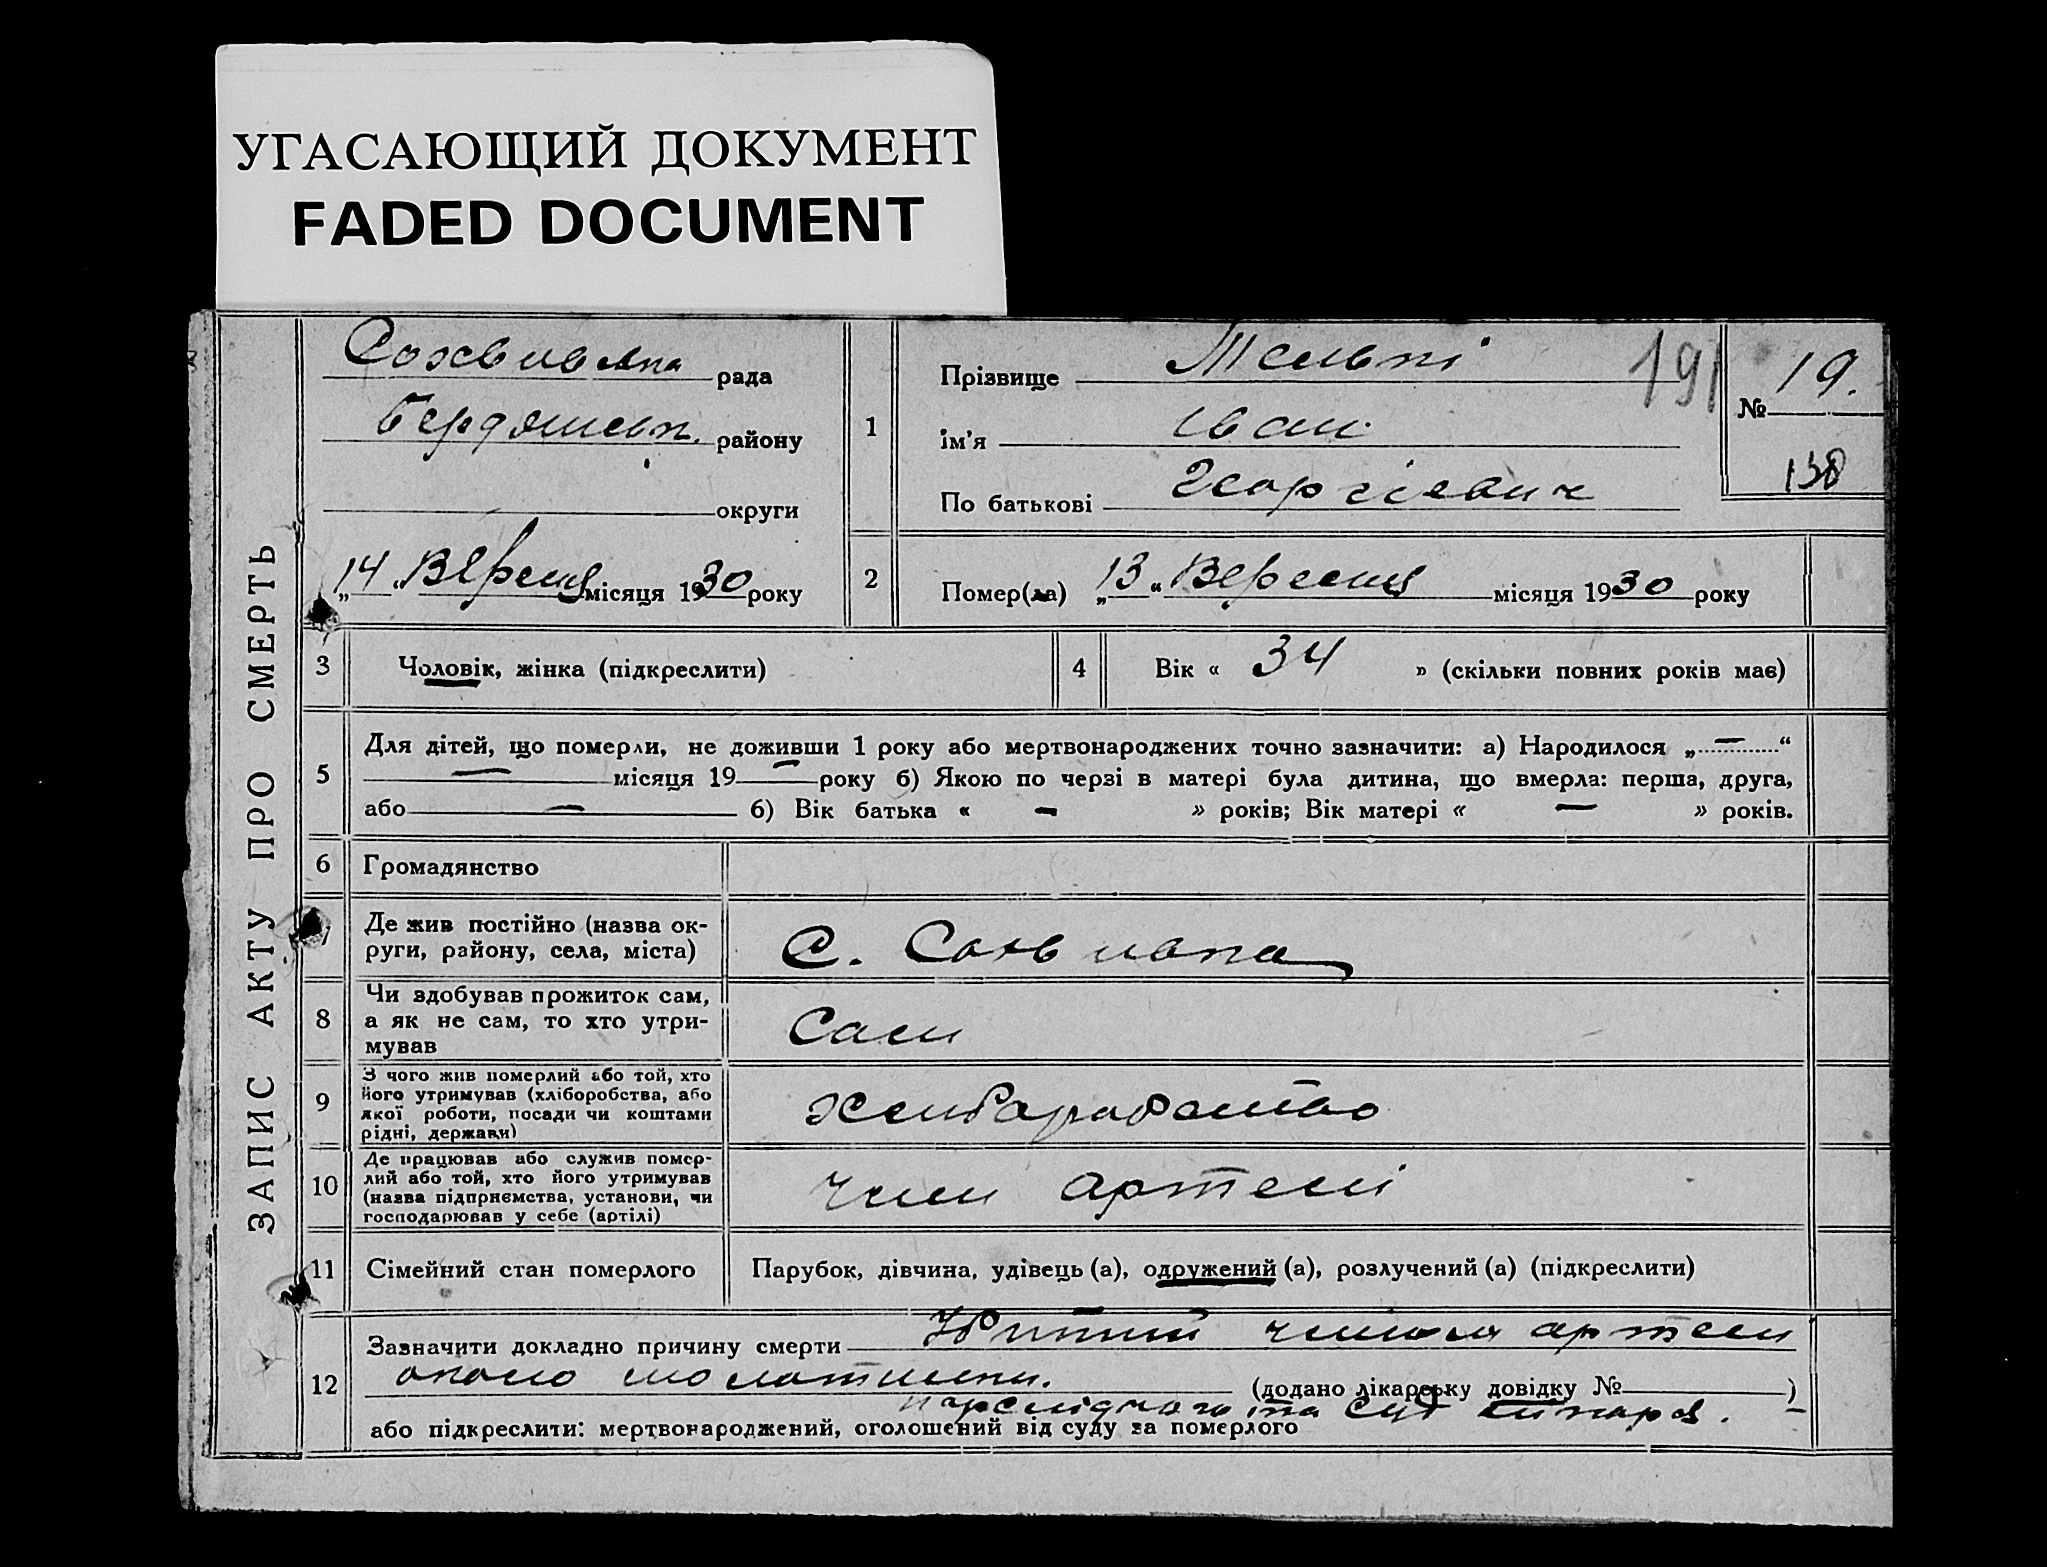 УГАСАЮЩИЙ ДОКУМЕНТ
FADED DOCUMENT
ЗАПИС АКТУ ПРО СМЕРТЬ
рада
Бердянськ. району
округи
„14“ Вересня місяця 1930 року
1
Прізвище
ім'я Іван
По батькові Георгієвич
191
№ 19.
138
2
Помер(ла) „13“ Вересня місяця 1930 року
3
Чоловік, жінка (підкреслити)
4
Вік « 34 » (скільки повних років має)
5
Для дітей, що померли, не доживши 1 року або мертвонароджених точно зазначити: а) Народилося „—“
— місяця 19 — року б) Якою по черзі в матері була дитина, що вмерла: перша, друга,
або — б) Вік батька « — » років; Вік матері « — » років.
6
Громадянство
7
Де жив постійно (назва ок-
руги, району, села, міста)
С.
8
Чи здобував прожиток сам,
а як не сам, то хто утри-
мував
Сам
9
З чого жив померлий або той, хто
його утримував (хліборобства, або
якої роботи, посади чи коштами
рідні, держави)
10
Де працював або служив помер-
лий або той, хто його утримував
(назва підприємства, установи, чи
господарював у себе (артілі)
член артелі
11
Сімейний стан померлого
Парубок, дівчина, удівець (а), одружений (а), розлучений (а) (підкреслити)
12
Зазначити докладно причину смерти Убитий членом артели
около молотилки.
(додано лікарську довідку № )
або підкреслити: мертвонароджений, оголошений від суду за померлого